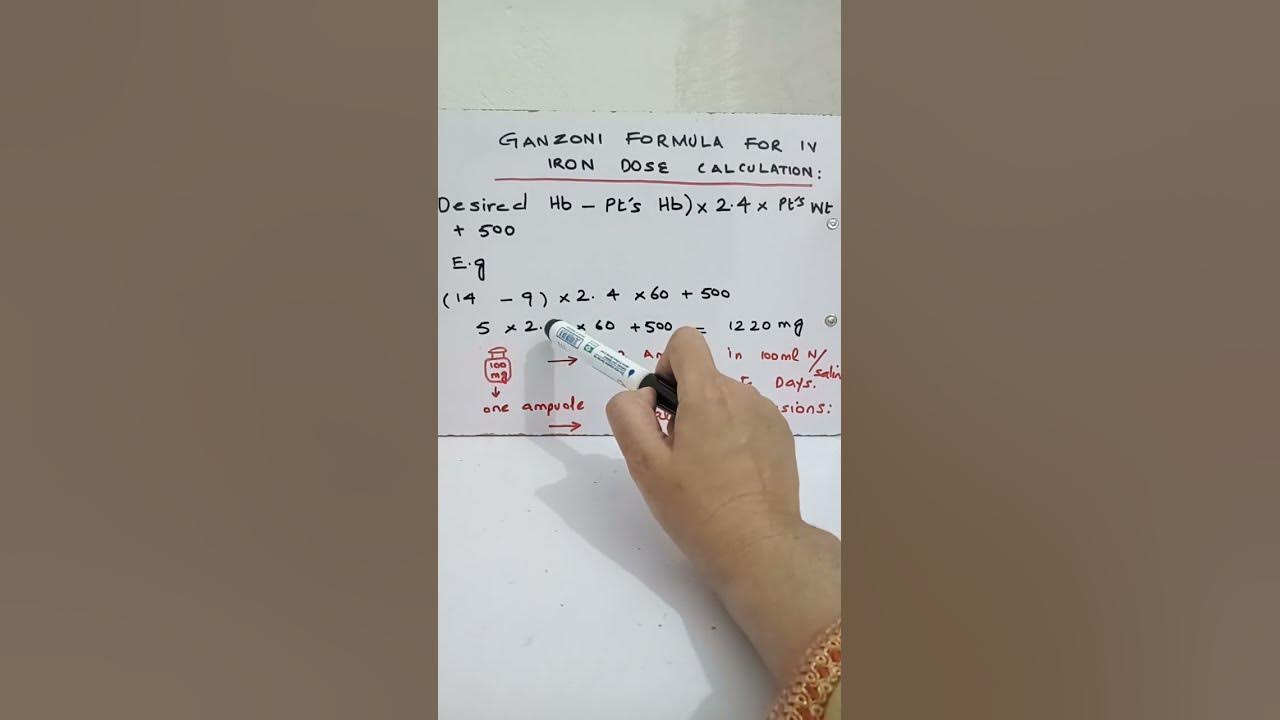 GANZONI FORMULA FOR IV
IRON DOSE CALCULATION:
Desired Hb - Pt's Hb) x 2.4 x Pt's Wt
+ 500
E.g
(14 - 9) x 2.4 x 60 + 500
5 x 2. x 60 + 500 = 1220 mg
100 mg
→ in 100ml N/saline
Days.
↓
one ampule
→